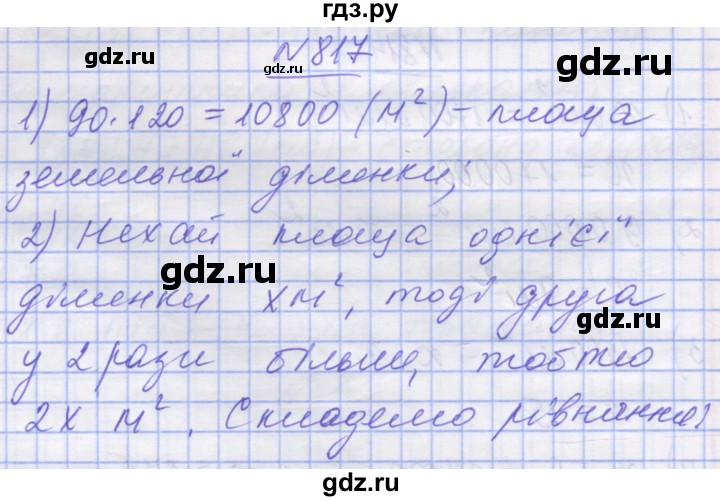 гдз.ру
gdz.ru gdz.ru
N 817
1) 90·120 = 10800 (м²) – площа
земельної ділянки;
gdz.ru
2) Нехай площа однієї
gdz.ru
ділянки х м², тоді друга
gdz.ru
у 2 рази більша, тобто
2х м². Складемо рівняння:
gdz.ru gdz.ru